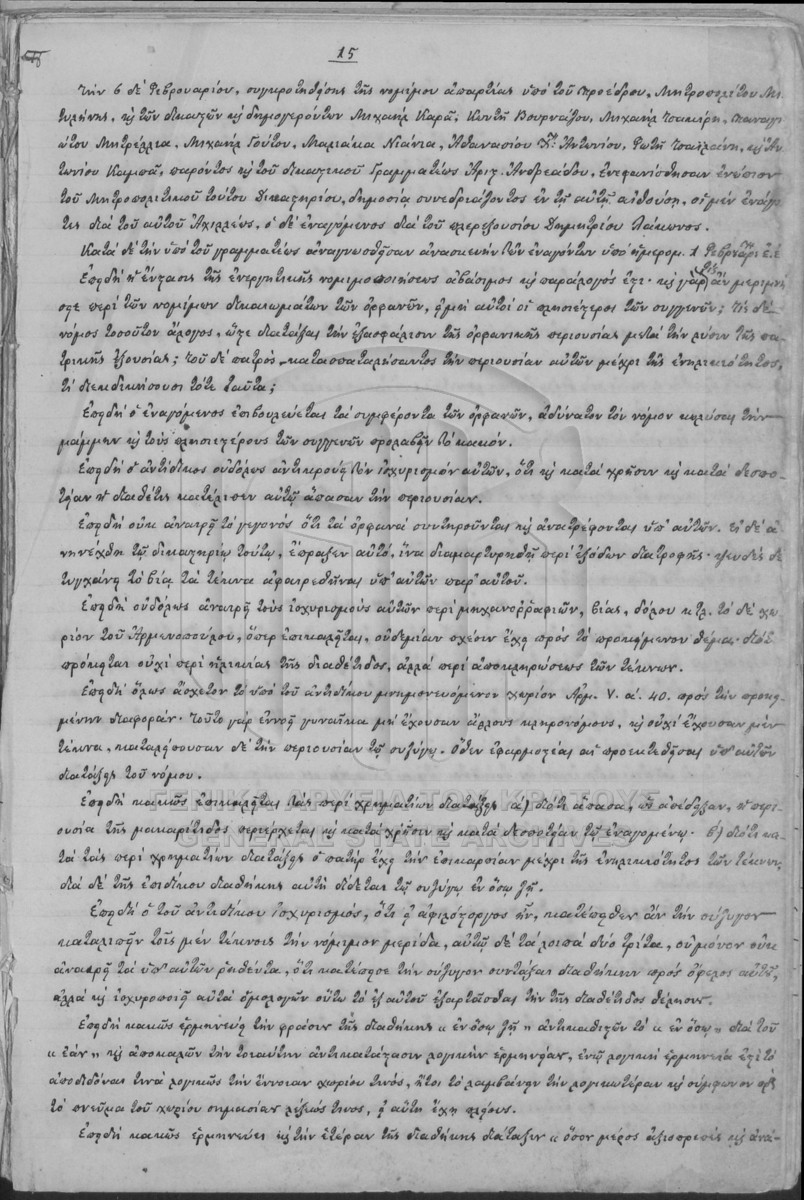 15
Τὴν 6 δὲ Φεβρουαρίου, συγκροτηθείσης τῆς νομίμου ἀπαρτίας ὑπὸ τοῦ Προέδρου, Μητροπολίτου Μι-
τυλήνης, κỳ τῶν δικαστῶν κỳ δημογερόντων Μιχαὴλ Καρᾶ, Κωντῆ Βουρνάζου, Μιχαὴλ Τσακίρη, Παναγι-
ώτου Μητρέλλια, Μιχαὴλ Γούτου, Μαλιάκα Νιάνια, Ἀθανασίου Χ. Ἀντωνίου, Φώτη Τσαλδάνη, κỳ Ἀν-
τωνίου Καμπᾶ, παρόντος κỳ τοῦ δικαστικοῦ Γραμματέως Ἀριστ. Ἀνδρεάδου, ἐνεφανίσθησαν ἐνώπιον
τοῦ Μητροπολιτικοῦ τούτου Δικαστηρίου, δημοσίᾳ συνεδριάζοντος ἐν τῇ αὐτῇ αἰθούσῃ, οἱ μὲν ἐνάγον-
τες διὰ τοῦ αὐτοῦ Ἀχιλλέως, ὁ δὲ ἐναγόμενος διὰ τοῦ πληρεξουσίου Δημητρίου Λάκωνος.
Κατὰ δὲ τὴν ὑπὸ τοῦ γραμματέως ἀναγνωσθεῖσαν ἀνασκευὴν τῶν ἐναγόντων ὑπὸ ἡμερομ. 1 Φεβρουαρί ἐ.ἔ
Ἐπειδὴ ἡ ἔνστασις τῆς ἐνεργητικῆς νομιμοποιήσεως ἀβάσιμος κỳ παράλογός ἐστι· κỳ γὰρ τίς ἂν μεριμνή-
σῃ περὶ τῶν νομίμων δικαιωμάτων τῶν ὀρφανῶν, εἰμὴ αὐτοὶ οἱ πλησιέστεροι τῶν συγγενῶν; Τίς δὲ
νόμος τοσοῦτον ἄλογος, ὥστε διατάξαι τὴν ἐξασφάλισιν τῆς ὀρφανικῆς περιουσίας μετὰ τὴν λύσιν τῆς πα-
τρικῆς ἐξουσίας; τοῦ δὲ πατρὸς κατασπαταλήσαντος τὴν περιουσίαν αὐτῶν μέχρι τῆς ἐνηλικιότητος,
τί διεκδικήσουσι τότε ταῦτα;
Ἐπειδὴ ὁ ἐναγόμενος ἐπιβουλεύεται τὰ συμφέροντα τῶν ὀρφανῶν, ἀδύνατον τὸν νόμον κωλύσαι τὴν
μάμμην κỳ τοὺς πλησιεστέρους τῶν συγγενῶν προλαβεῖν τὸ κακόν.
Ἐπειδὴ ὁ ἀντίδικος οὐδόλως ἀντικρούει τὸν ἰσχυρισμὸν αὐτῶν, ὅτι κỳ κατὰ χρῆσιν κỳ κατὰ δεσπο-
τείαν ἡ διαθέτις κατέλιπεν αὐτῷ ἅπασαν τὴν περιουσίαν.
Ἐπειδὴ οὐκ ἀναιρεῖ τὸ γεγονὸς ὅτι τὰ ὀρφανὰ συντηροῦνται κỳ ἀνατρέφονται ὑπ' αὐτῶν. εἰ δὲ ἀ-
νηνέχθη τῷ δικαστηρίῳ τούτῳ, ἔπραξεν αὐτό, ἵνα διαμαρτυρηθῇ περὶ ἐξόδων διατροφῆς· ψευδὲς δὲ
τυγχάνει τὸ βίᾳ τὰ τέκνα ἀφαιρεθῆναι ὑπ' αὐτῶν παρ' αὐτοῦ.
Ἐπειδὴ οὐδόλως ἀναιρεῖ τοὺς ἰσχυρισμοὺς αὐτῶν περὶ μηχανορραφιῶν, βίας, δόλου κτλ. τὸ δὲ χω-
ρίον τοῦ Ἁρμενοπούλου, ὅπερ ἐπικαλεῖται, οὐδεμίαν σχέσιν ἔχει πρὸς τὸ προκείμενον θέμα· διότι
πρόκειται οὐχὶ περὶ ἡλικίας τῆς διαθέτιδος, ἀλλὰ περὶ ἀποκληρώσεως τῶν τέκνων.
Ἐπειδὴ ὅλως ἄσχετον τὸ ὑπὸ τοῦ ἀντιδίκου μνημονευόμενον χωρίον Ἁρμ. V. αʹ. 40. πρὸς τὴν προκει-
μένην διαφοράν· τοῦτο γὰρ ἐννοεῖ γυναῖκα μὴ ἔχουσαν ἄλλους κληρονόμους, κỳ οὐχὶ ἔχουσαν μὲν
τέκνα, καταλείπουσαν δὲ τὴν περιουσίαν τῷ συζύγῳ. Ὅθεν ἐφαρμοστέαι αἱ προεκτεθεῖσαι ὑπ' αὐτῶν
διατάξεις τοῦ νόμου.
Ἐπειδὴ κακῶς ἐπικαλεῖται τὰς περὶ χρηματίων διατάξεις α) διότι ἅπασα, ὡς ἀπέδειξαν, ἡ περι-
ουσία τῆς μακαρίτιδος περιέρχεται κỳ κατὰ χρῆσιν κỳ κατὰ δεσποτείαν τῷ ἐναγομένῳ. β) διότι κα-
τὰ τὰς περὶ χρηματίων διατάξεις ὁ πατὴρ ἔχει τὴν ἐπικαρπίαν μέχρι τῆς ἐνηλικιότητος τῶν τέκνων,
διὰ δὲ τῆς ἐπιδίκου διαθήκης αὕτη δίδεται τῷ συζύγῳ ἐν ὅσῳ ζῇ.
Ἐπειδὴ ὁ τοῦ ἀντιδίκου ἰσχυρισμός, ὅτι εἰ ἀφιλόστοργος ἦν, κατέπειθεν ἂν τὴν σύζυγον
καταλιπεῖν τοῖς μὲν τέκνοις τὴν νόμιμον μερίδα, αὐτῷ δὲ τὰ λοιπὰ δύο τρίτα, οὐ μόνον οὐκ
ἀναιρεῖ τὰ ὑπ' αὐτῶν ῥηθέντα, ὅτι κατέπεισε τὴν σύζυγον συντάξαι διαθήκην πρὸς ὄφελος αὐτοῦ,
ἀλλὰ κỳ ἰσχυροποιεῖ αὐτὰ ὁμολογῶν οὕτω τὸ ἐξ αὐτοῦ ἐξαρτᾶσθαι τὴν τῆς διαθέτιδος θέλησιν.
Ἐπειδὴ κακῶς ἑρμηνεύει τὴν φράσιν τῆς διαθήκης « ἐν ὅσῳ ζῇ » ἀντικαθιστῶν τὸ « ἐν ὅσῳ » διὰ τοῦ
« ἐὰν » κỳ ἀποκαλῶν τὴν τοιαύτην ἀντικατάστασιν λογικὴν ἑρμηνείαν, ἐνῷ λογικὴ ἑρμηνεία ἐστὶ τὸ
ἀποδιδόναι τινὰ λογικῶς τὴν ἔννοιαν χωρίου τινός, ἤτοι τὸ λαμβάνειν τὴν λογικωτέραν κỳ σύμφωνον πρὸς
τὸ πνεῦμα τοῦ χωρίου σημασίαν λέξεώς τινος, εἰ αὕτη ἔχει πλείους.
Ἐπειδὴ κακῶς ἑρμηνεύει κỳ τὴν ἑτέραν τῆς διαθήκης διάταξιν « ὅσον μέρος ἀξιοπρεπὲς κỳ ἀνά-
ΓΕΝΙΚΑ ΑΡΧΕΙΑ ΤΟΥ ΚΡΑΤΟΥΣ
GENERAL STATE ARCHIVES